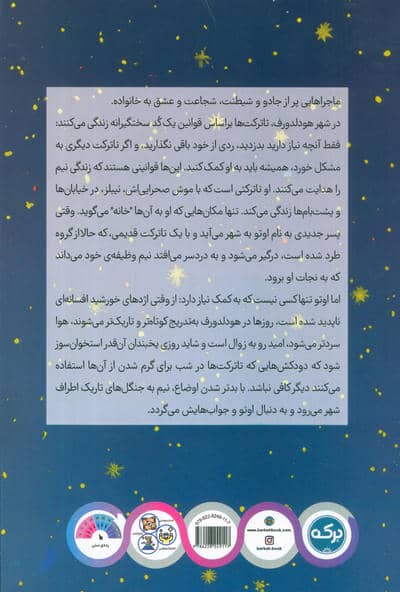 ماجراهایی پر از جادو و شیطنت، شجاعت و عشق به خانواده.
در شهر هودلدورف، تاترکت‌ها براساس قوانین یک کُد سختگیرانه زندگی می‌کنند:
فقط آنچه نیاز دارید بدزدید، ردی از خود باقی نگذارید، و اگر تاترکت دیگری به
مشکل خورد، همیشه باید به او کمک کنید. این‌ها قوانینی هستند که زندگی نیم
را هدایت می‌کنند. او تاترکتی است که با موش صحرایی‌اش، نیبلز، در خیابان‌ها
و پشت‌بام‌ها زندگی می‌کند. تنها مکان‌هایی که او به آن‌ها "خانه" می‌گوید. وقتی
پسر جدیدی به نام اوتو به شهر می‌آید و با یک تاترکت قدیمی، که حالا از گروه
طرد شده است، درگیر می‌شود و به دردسر می‌افتد نیم وظیفه‌ی خود می‌داند
که به نجات او برود.
اما اوتو تنها کسی نیست که به کمک نیاز دارد: از وقتی اژدهای خورشید افسانه‌ای
ناپدید شده است، روزها در هودلدورف به‌تدریج کوتاه‌تر و تاریک‌تر می‌شوند، هوا
سردتر می‌شود، امید رو به زوال است و شاید روزی یخبندان آن‌قدر استخوان‌سوز
شود که دودکش‌هایی که تاترکت‌ها در شب برای گرم شدن از آن‌ها استفاده
می‌کنند دیگر کافی نباشد. با بدتر شدن اوضاع، نیم به جنگل‌های تاریک اطراف
شهر می‌رود و به دنبال اوتو و جواب‌هایش می‌گردد.
برکه
www.barkehbook.com
barkeh.book